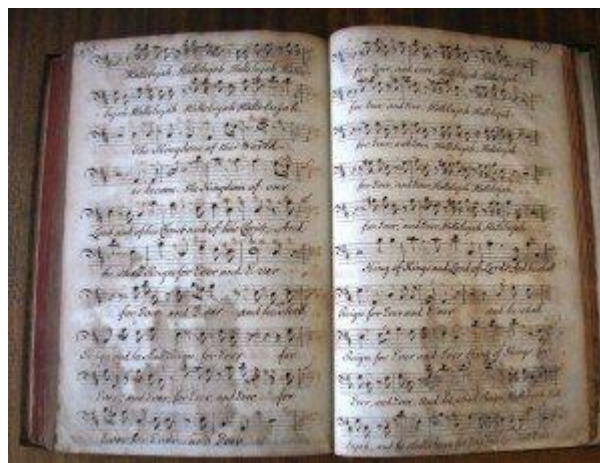 Hallelujah, Hallelujah Hallelujah
lujah Hallelujah Hallelujah Hallelujah
the Kingdom of this World
is become. the Kingdom of our
Lord and of his Christ and of his Christ, And
he shall Reign for Ever and Ever
for Ever and Ever and he shall
Reign and he shall Reign for Ever for
Ever, and Ever, for Ever, and Ever for
Ever for Ever and Ever
for Ever, and ever, Hallelujah Hallelujah
for Ever, and Ever, Hallelujah Hallelujah
for Ever, and Ever, Hallelujah Hallelujah
for Ever, and Ever, Hallelujah Hallelujah.
for Ever, and Ever, Hallelujah Hallelujah
King of Kings and Lord of Lords And he shall
Reign for Ever and Ever and he shall
Reign for Ever and Ever King of Kings for
Ever, and Ever And he shall Reign Hallelujah
lujah, and he shall Reign for